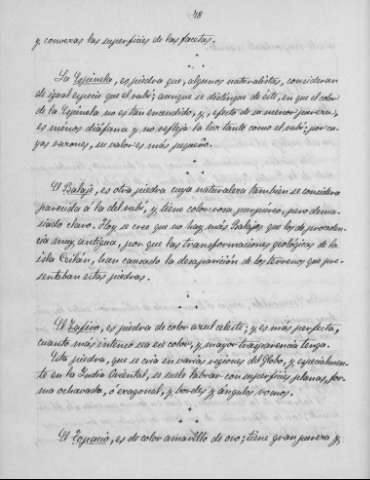 48
y convexas las superficies de las facetas.
La Espinela, es piedra que, algunos naturalistas, consideran
de igual especie que el rubí; aunque se distingue de éste, en que el color
de la Espinela no es tan encendido, y, efecto de su menor pureza,
es ménos diáfana y no refleja la luz tanto como el rubí; por cu-
yas razones, su valor es más pequeño.
El Balaje, es otra piedra cuya naturaleza tambien se considera
parecida á la del rubí, y tiene color rosa purpúreo, pero dema-
siado claro. Hoy se cree que no hay más Balajes que los de proceden-
cia muy antigua, por que las transformaciones geológicas de la
isla Ceilán, han causado la desaparición de los terrenos que pre-
sentaban estas piedras.
El Zafiro, es piedra de color azul celeste; y es más perfecta,
cuanto más intenso sea ese color, y mayor trasparencia tenga.
Esta piedra, que se cria en varias regiones del Globo, y especialmen-
te en la India Oriental, se suele labrar con superficies planas, for-
ma ochavada, ó exagonal, y bordes y ángulos romos.
El Topacio, es de color amarillo de oro; tiene gran pureza y